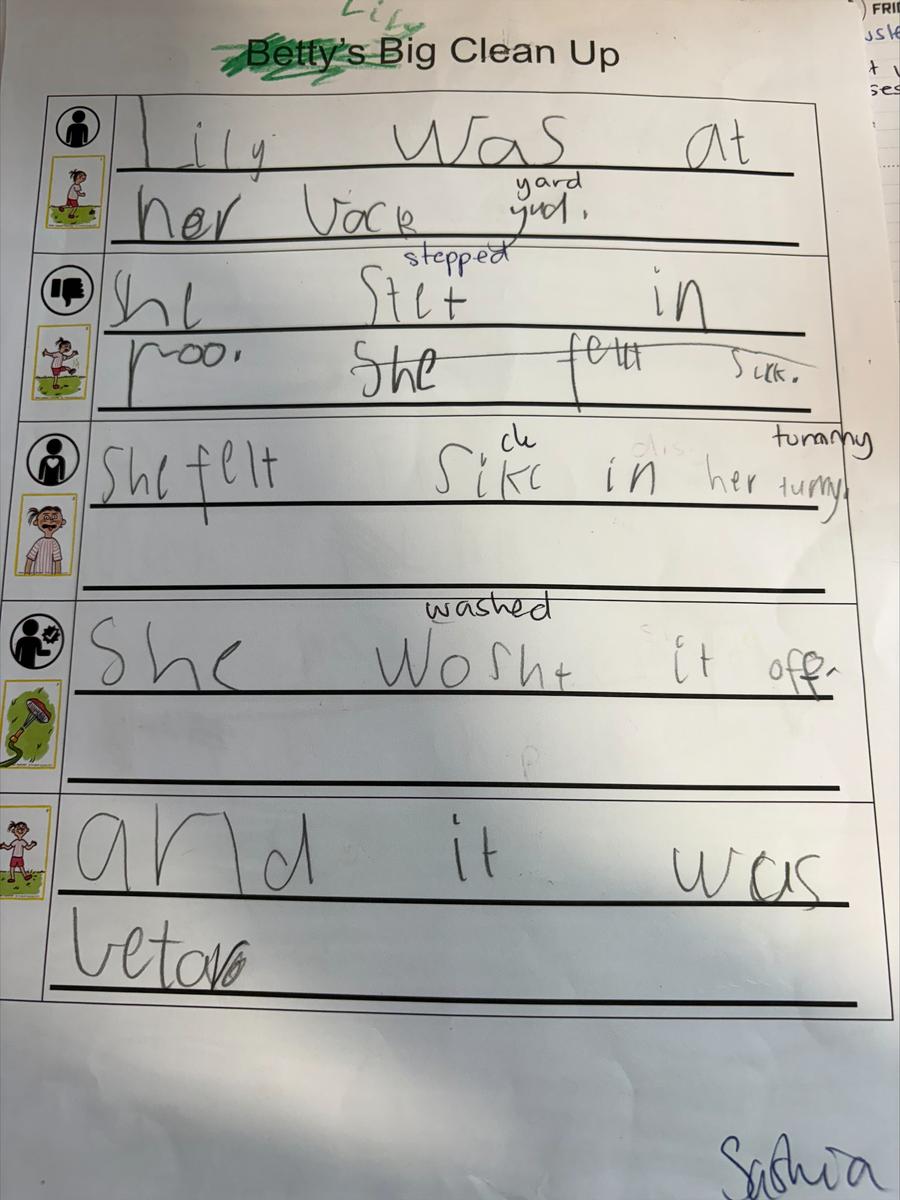 Lily
Betty's Big Clean Up
Lily was at
yard
her back yud.
stepped
She Stet in
poo. She felt sick.
ck
tummy
She felt Sike in her tumy.
washed
She Wosht it off.
and it was
betar
Sashia